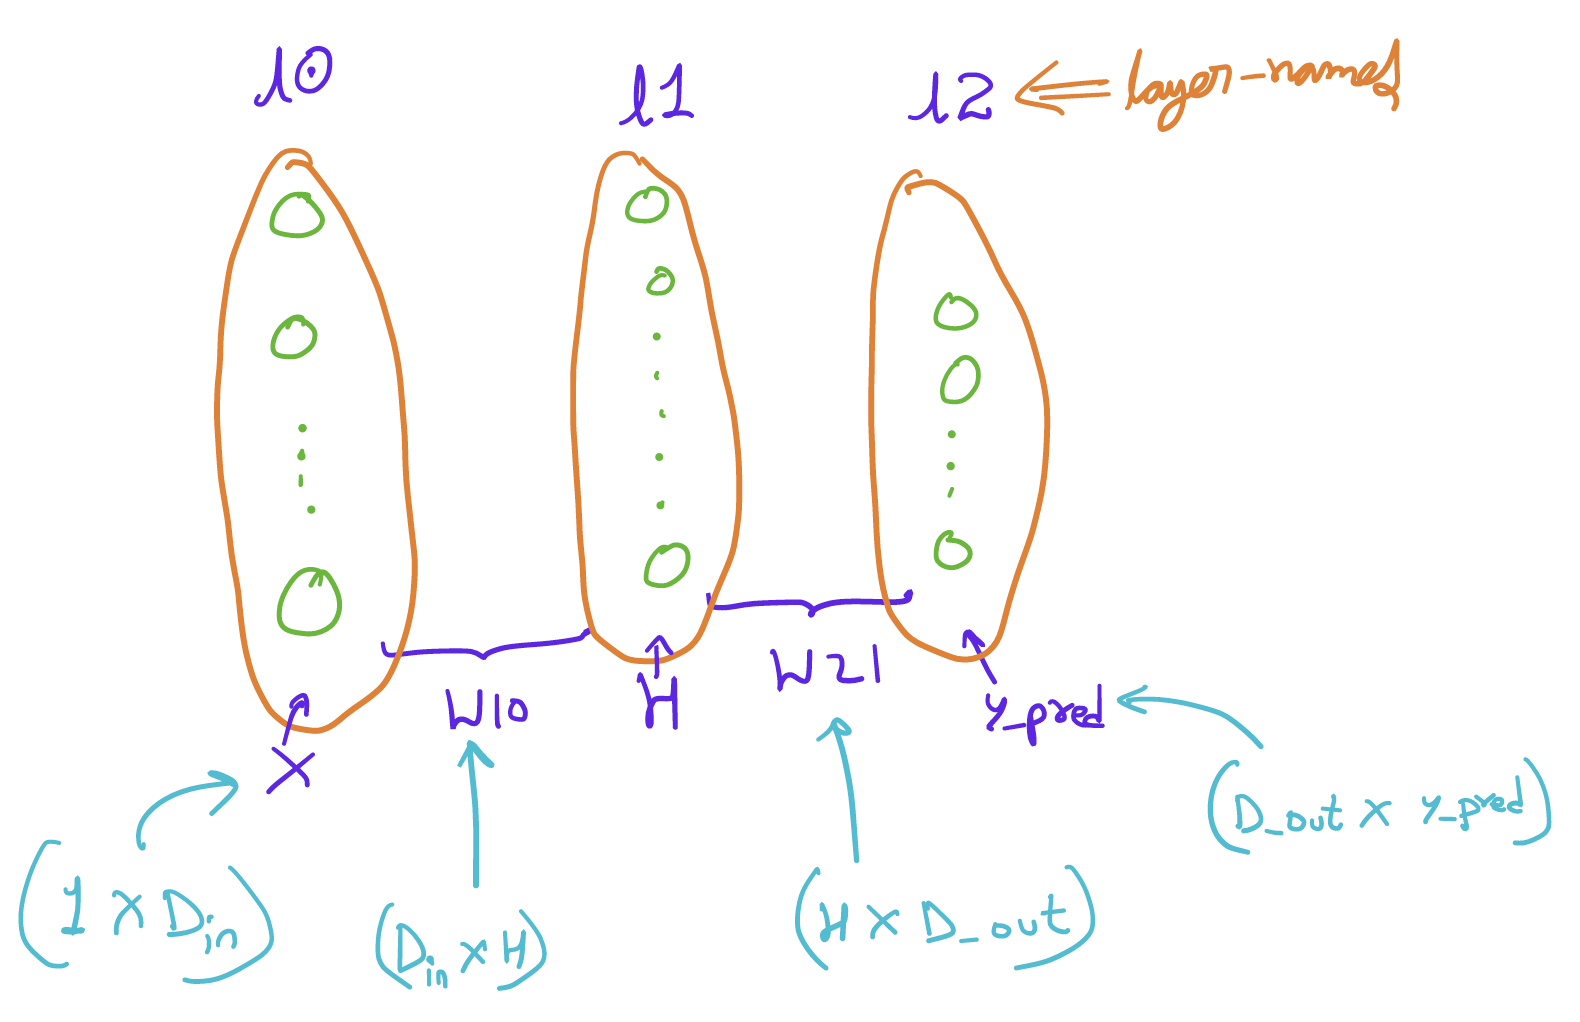 l0
l1
l2 layer-names
W10
H
W21
y_pred
X
(1 X D_in)
(D_in X H)
(H X D_out)
(D_out X y_pred)